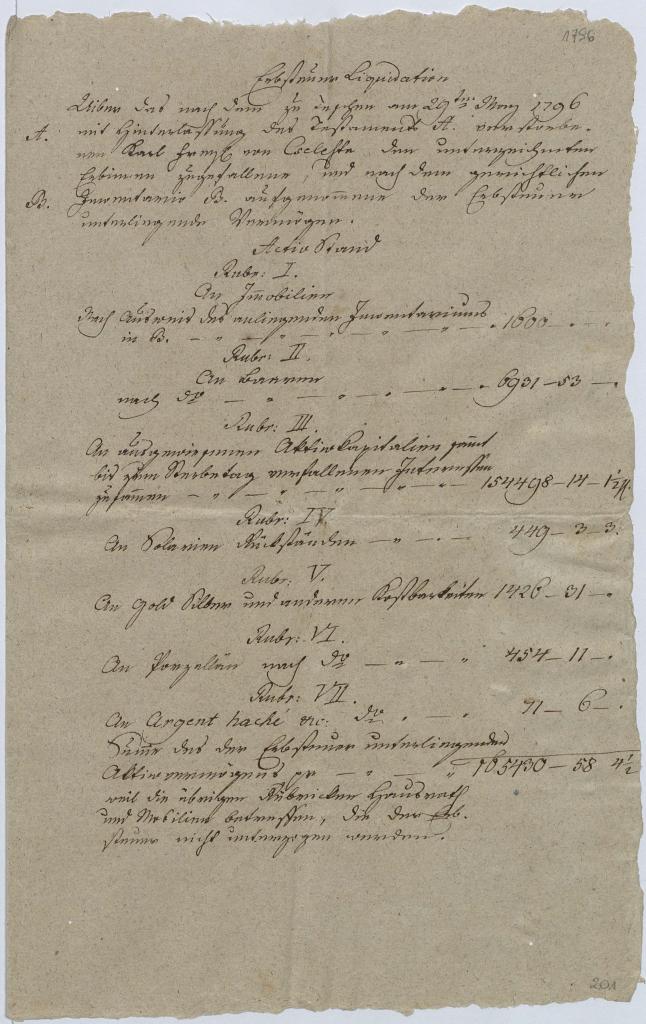 1796
Erbsteuer Liquidation
Uiber das nach dem zu Teschen am 29ten May 1796
A. mit Hinterlassung des Testaments A. verstorbe-
nen Karl Freyh von Cselesta den unterzeichneten
Erbinen zugefallene, und nach dem gerichtlichen
B. Inventario B. aufgenommene der Erbsteuer
unterliegende Vermögen.
Activ Stand
Rubr: I.
An Immobilien
Nach Ausweis des anliegenden Inventariums
in B. 1600
Rubr: II.
An Baaren
nach do 6931-53-
Rubr: III.
An ausgewiesenen Aktivkapitalien samt
bis zum Sterbetag verfallenen Interessen
zusammen 154498-14-1½
Rubr: IV.
An Solarien Rückständen 449-3-3.
Rubr: V.
An Gold Silber und anderen Kostbarkeiten 1426-31-
Rubr: VI.
An Porzellän nach do 454-11-
Rubr: VII.
An Argent haché etc: do 71-6-
Summe des der Erbsteuer unterliegenden
Aktivvermögens pr 165430-58 4½
weil die übrigen Rubricken Hausrath
und Mobilien betreffen, die der Erb-
steuer nicht unterzogen werden.
201